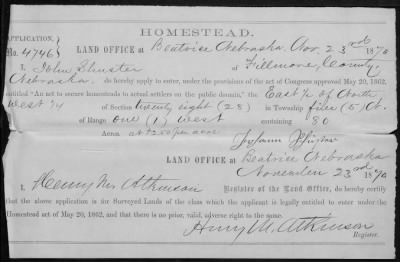 HOMESTEAD.
APPLICATION
No. 4746
LAND OFFICE at Beatrice Nebraska Nov. 23rd 1870
I, John Shuster of Fillmore County,
Nebraska do hereby apply to enter, under the provisions of the act of Congress approved May 20, 1862,
entitled "An act to secure homesteads to actual settlers on the public domain," the East ½ of North
West ¼ of Section twenty eight (28) in Township five (5) N.
of Range one (1) West containing 80
Acres. at $2.50 per acre
Johann
LAND OFFICE at Beatrice Nebraska
November 23rd 1870
I, Henry M. Atkinson Register of the Land Office, do hereby certify
that the above application is for Surveyed Lands of the class which the applicant is legally entitled to enter under the
Homestead act of May 20, 1862, and that there is no prior, valid, adverse right to the same.
Henry M. Atkinson
Register.